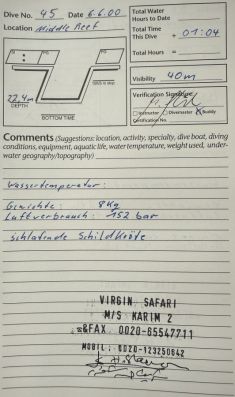 Dive No. 45 Date 6.6.00
Location Middle Reef
Total Water
Hours to Date
Total Time
This Dive + 01:04
Total Hours =
Visibility 40m
22,4m
DEPTH
BOTTOM TIME
Verification Signature
Instructor Divemaster Buddy
Certification No.
Comments (Suggestions: location, activity, specialty, dive boat, diving
conditions, equipment, aquatic life, water temperature, weight used, under-
water geography/topography)
Wassertemperatur:
Gewichte: 8kg
Luftverbrauch: 152 bar
schlafende Schildkröte
VIRGIN SAFARI
M/S KARIM 2
&FAX. 0020-65547711
MOBIL: 0020-123250642